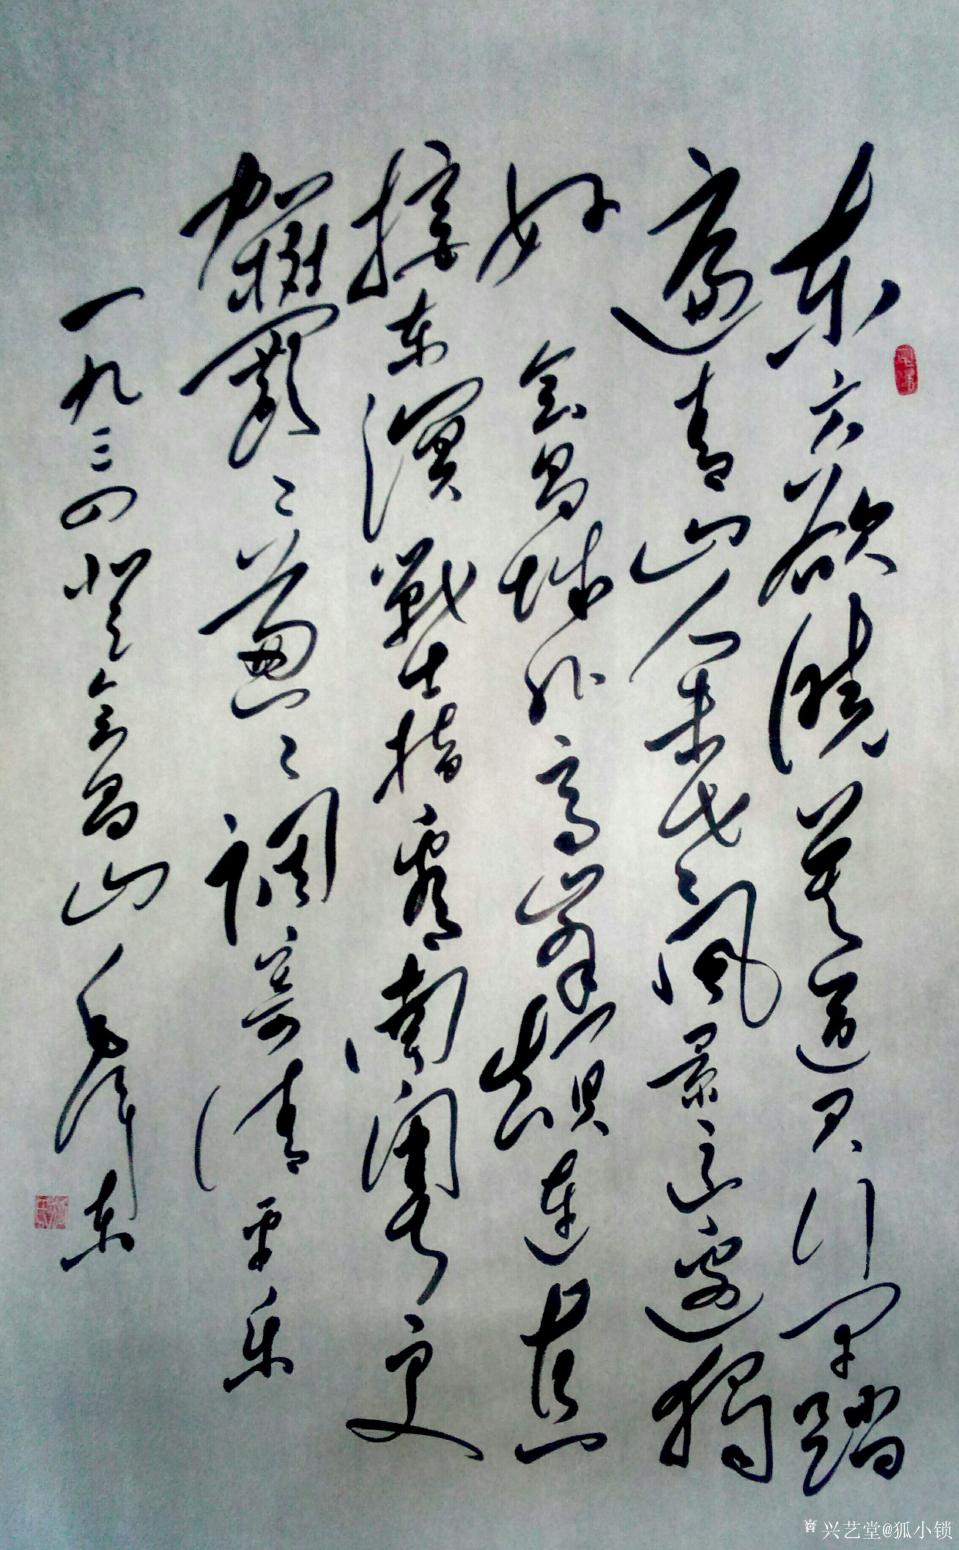 东方欲晓莫道君行早踏
遍青山人未老风景这边独
好会昌城外高峰颠连直
接东溟戰士指看南粤更
加鬱々葱々调寄清平乐
一九三四登会昌山毛泽东
兴艺堂@狐小锁